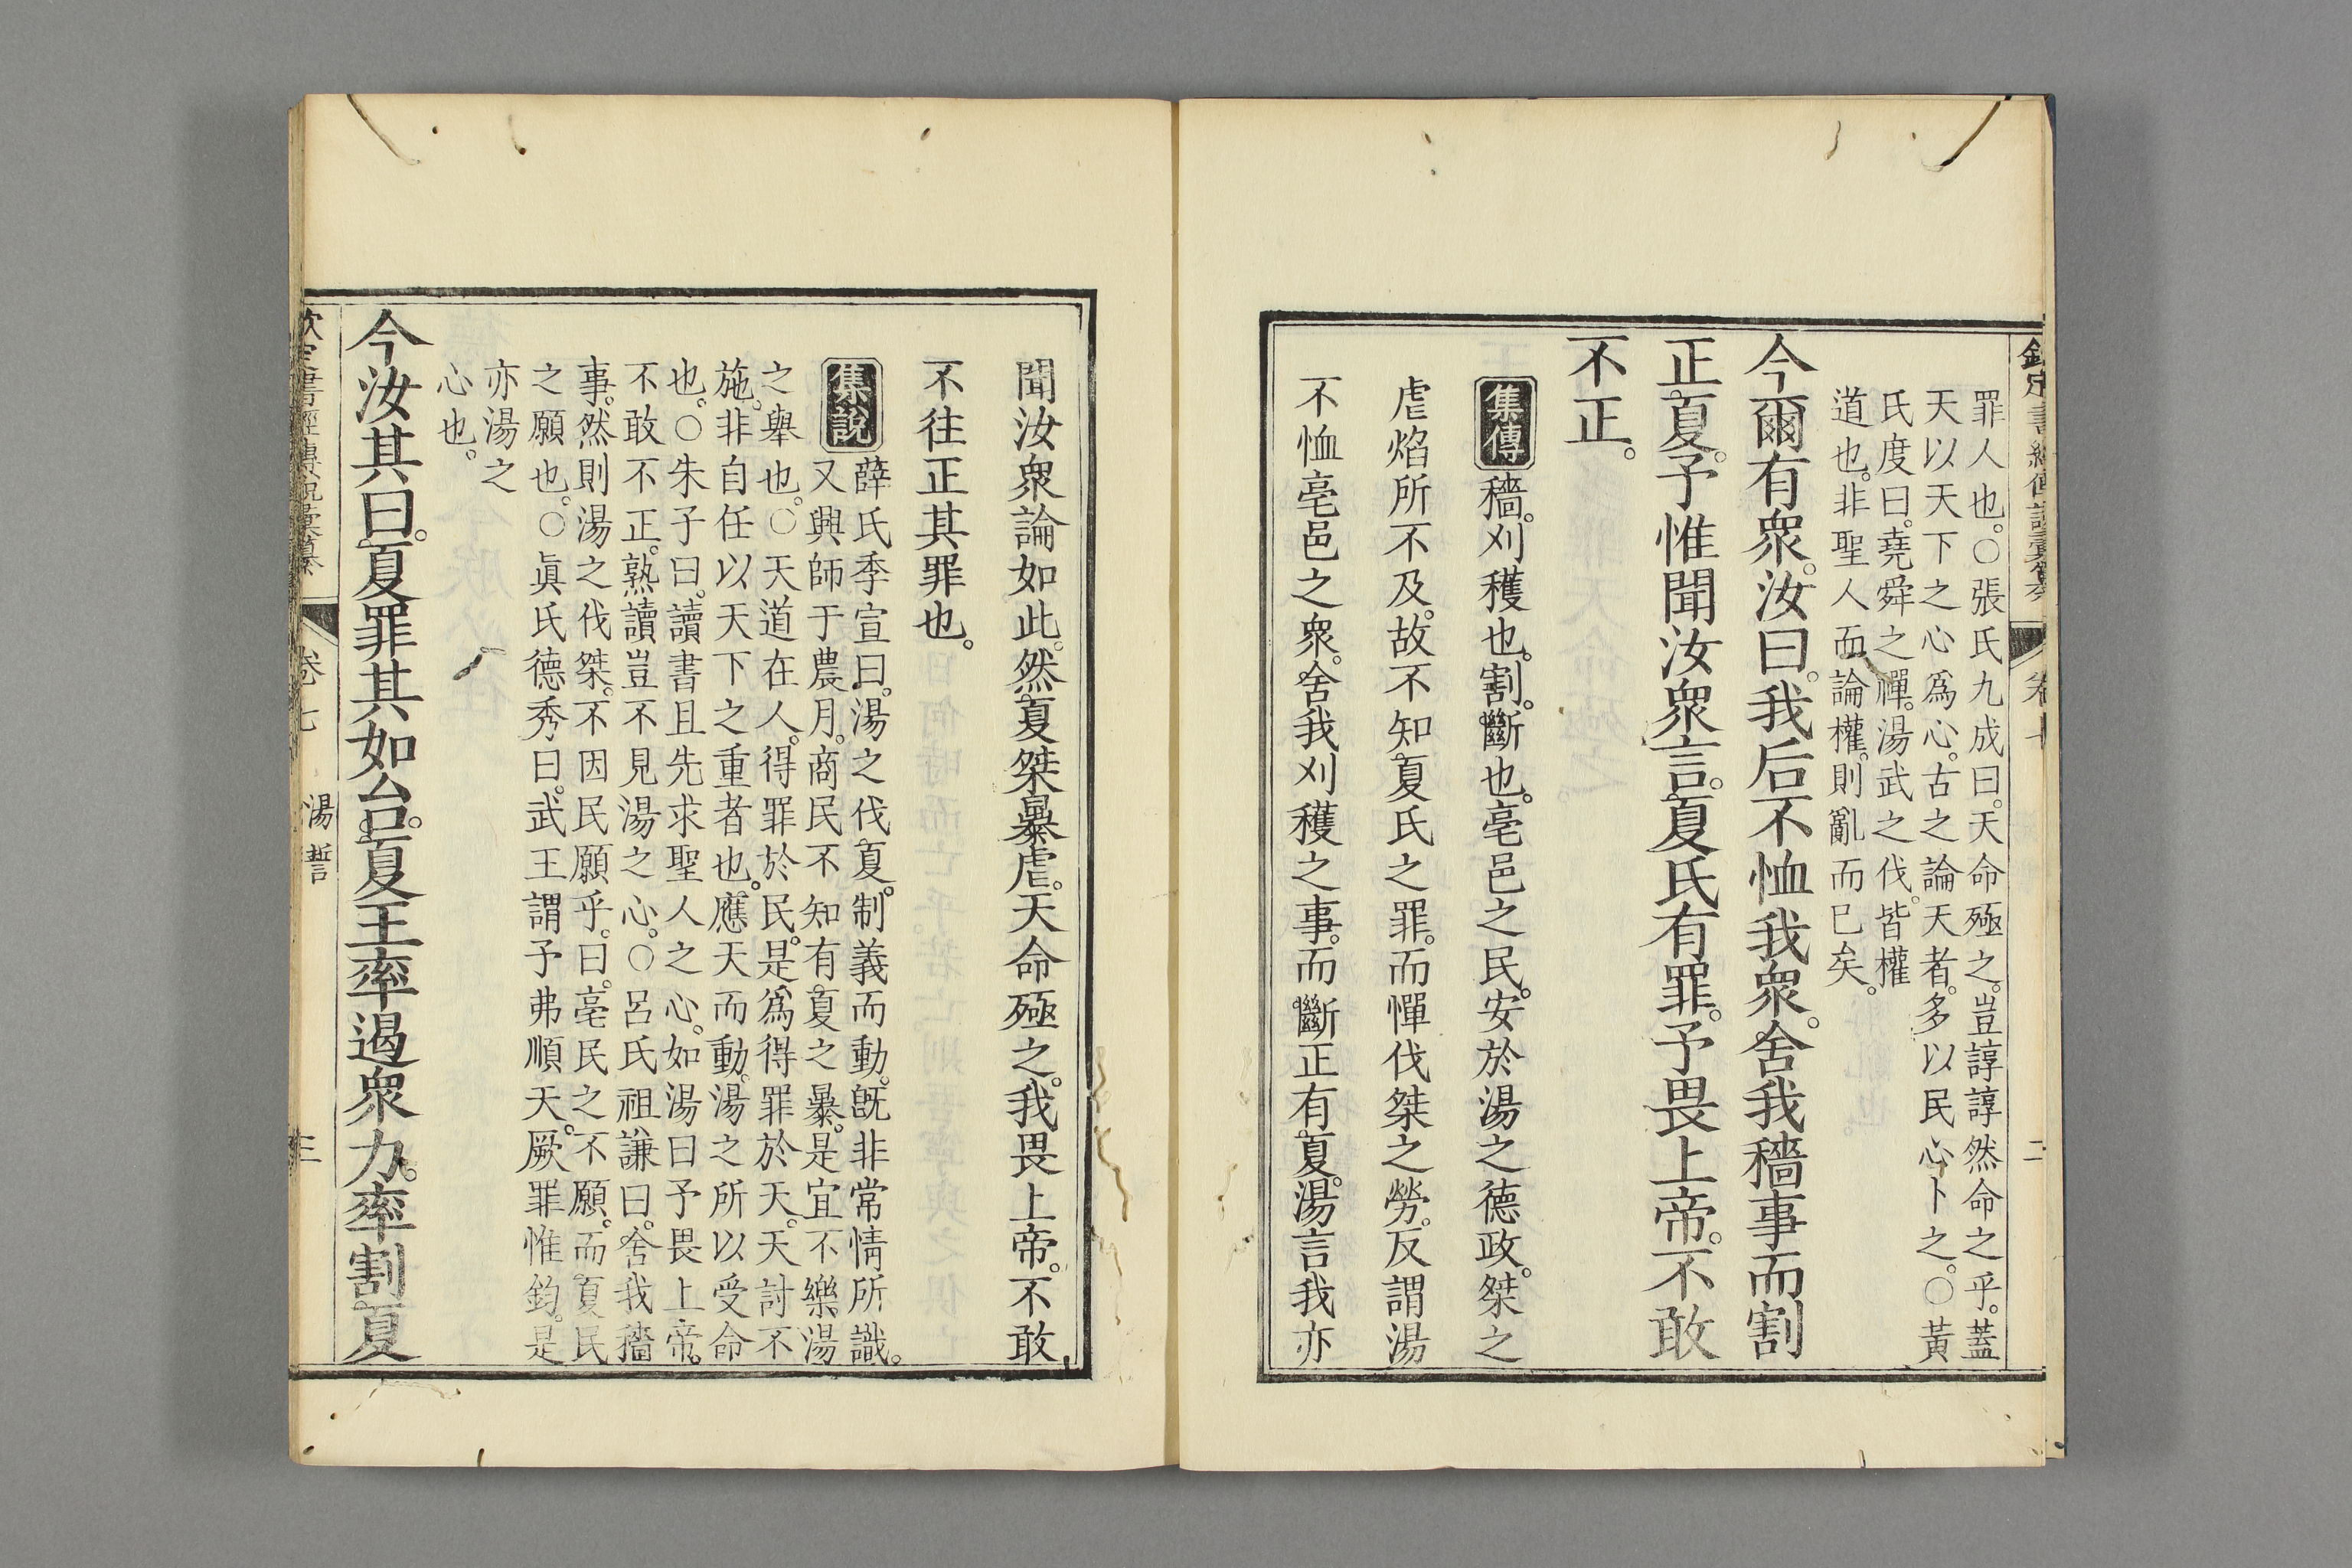 欽定書經傳說彙纂 卷七 二
罪人也。○張氏九成曰。天命殛之。豈諄諄然命之乎。蓋
天以天下之心爲心。古之論天者。多以民心卜之。○黃
氏度曰。堯舜之禪。湯武之伐。皆權
道也。非聖人而論權。則亂而已矣。
今爾有衆。汝曰。我后不恤我衆。舍我穡事而割
正夏。予惟聞汝衆言。夏氏有罪。予畏上帝。不敢
不正。
集傳 穡。刈穫也。割。斷也。亳邑之民。安於湯之德政。桀之
虐焰所不及。故不知夏氏之罪。而憚伐桀之勞。反謂湯
不恤亳邑之衆。舍我刈穫之事。而斷正有夏。湯言我亦
聞汝衆論如此。然夏桀暴虐。天命殛之。我畏上帝。不敢
不往正其罪也。
集說 薛氏季宣曰。湯之伐夏。制義而動。旣非常情所識。
又興師于農月。商民不知有夏之暴。是宜不樂湯
之舉也。○天道在人。得罪於民。是爲得罪於天。天討不
施。非自任以天下之重者也。應天而動。湯之所以受命
也。○朱子曰。讀書且先求聖人之心。如湯曰予畏上帝。
不敢不正。熟讀豈不見湯之心。○呂氏祖謙曰。舍我穡
事。然則湯之伐桀。不因民願乎。曰。亳民之不願。而夏民
之願也。○眞氏德秀曰。武王謂予弗順天。厥罪惟鈞。是
亦湯之
心也。
今汝其曰。夏罪其如台。夏王率遏衆力。率割夏
欽定書經傳說彙纂 卷七 湯誓 三